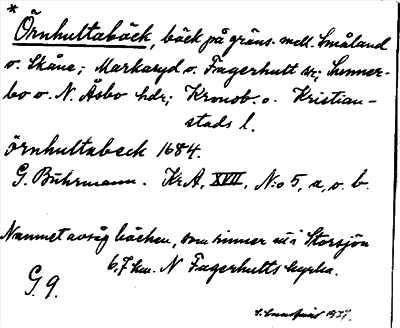 *
Örnhultabäck, bäck på gräns. mell. Småland
o. Skåne; Markaryd o. Fagerhult sr; Sunner-
bo o. N. Åsbo hdr; Kronob. o. Kristian-
stads l.
örnhultabeck 1684.
G. Buhrmann. Kr.A, XVII, N:o 5, a, o. b.
Namnet avsåg bäcken, som rinner ut i Storsjön
6,7 km. N Fagerhults kyrka.
G. 9.
1937.